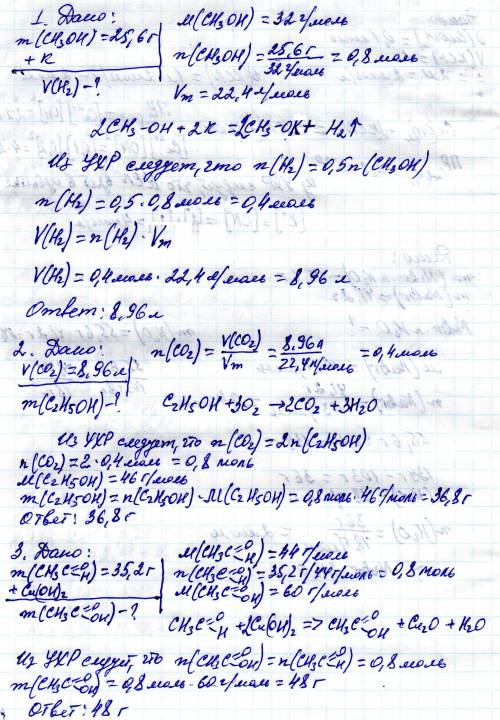 1. Дано: M(CH₃OH) = 32 г/моль
m(CH₃OH) = 25,6 г n(CH₃OH) = 25,6 г / 32 г/моль = 0,8 моль
+ K
V(H₂) - ? Vm = 22,4 л/моль
2CH₃-OH + 2K = 2CH₃-OK + H₂↑
Из УХР следует, что n(H₂) = 0,5n(CH₃OH)
n(H₂) = 0,5 · 0,8 моль = 0,4 моль
V(H₂) = n(H₂) · Vm
V(H₂) = 0,4 моль · 22,4 л/моль = 8,96 л
Ответ: 8,96 л
2. Дано: n(CO₂) = V(CO₂) / Vm = 8,96 л / 22,4 л/моль = 0,4 моль
V(CO₂) = 8,96 л
m(C₂H₅OH) - ? C₂H₅OH + 3O₂ → 2CO₂ + 3H₂O
Из УХР следует, что n(CO₂) = 2n(C₂H₅OH)
n(CO₂) = 2 · 0,4 моль = 0,8 моль
M(C₂H₅OH) = 46 г/моль
m(C₂H₅OH) = n(C₂H₅OH) · M(C₂H₅OH) = 0,8 моль · 46 г/моль = 36,8 г
Ответ: 36,8 г
3. Дано: M(CH₃C=O H) = 44 г/моль
m(CH₃C=O H) = 35,2 г n(CH₃C=O H) = 35,2 г / 44 г/моль = 0,8 моль
+ Cu(OH)₂ M(CH₃C=O OH) = 60 г/моль
m(CH₃C=O OH) - ?
CH₃C=O H + 2Cu(OH)₂ => CH₃C=O OH + Cu₂O + H₂O
Из УХР следует, что n(CH₃C=O OH) = n(CH₃C=O H) = 0,8 моль
m(CH₃C=O OH) = 0,8 моль · 60 г/моль = 48 г
Ответ: 48 г